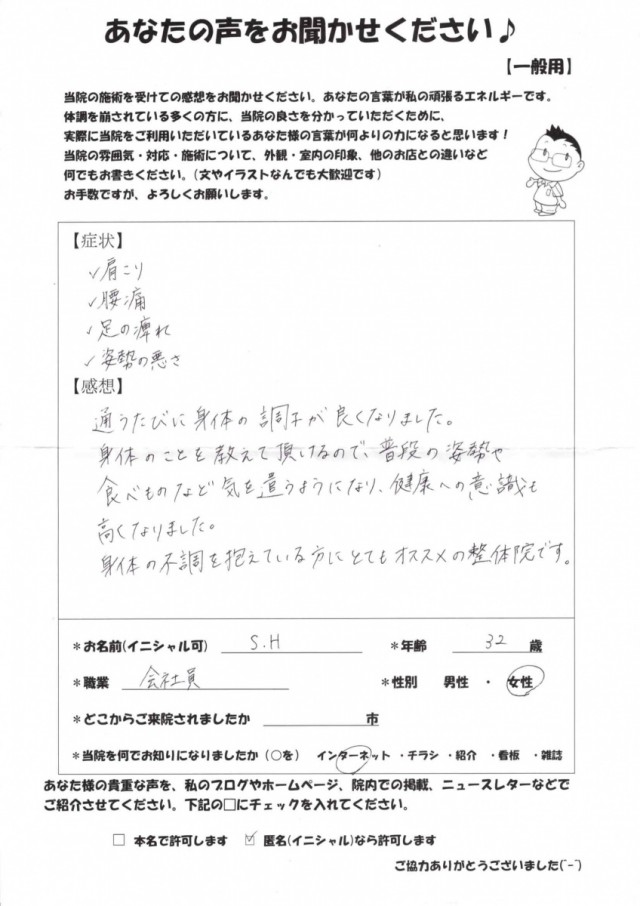 あなたの声をお聞かせください♪
【一般用】
当院の施術を受けての感想をお聞かせください。あなたの言葉が私の頑張るエネルギーです。
体調を崩されている多くの方に、当院の良さを分かっていただくために、
実際に当院をご利用いただいているあなた様の言葉が何よりの力になると思います！
当院の雰囲気・対応・施術について、外観・室内の印象、他のお店との違いなど
何でもお書きください。（文やイラストなんでも大歓迎です）
お手数ですが、よろしくお願いします。
【症状】
✓肩こり
✓腰痛
✓足の痺れ
✓姿勢の悪さ
【感想】
通うたびに身体の調子が良くなりました。
身体のことを教えて頂けるので、普段の姿勢や
食べものなど気を遣うようになり、健康への意識も
高くなりました。
身体の不調を抱えている方にとてもオススメの整体院です。
*お名前(イニシャル可) S.H *年齢 32 歳
*職業 会社員 *性別 男性 ・ 女性
*どこからご来院されましたか 市
*当院を何でお知りになりましたか（○を） インターネット ・チラシ ・紹介 ・看板 ・雑誌
あなた様の貴重な声を、私のブログやホームページ、院内での掲載、ニュースレターなどで
ご紹介させてください。下記の□にチェックを入れてください。
□ 本名で許可します ☑ 匿名(イニシャル)なら許可します
ご協力ありがとうございました(^-^)